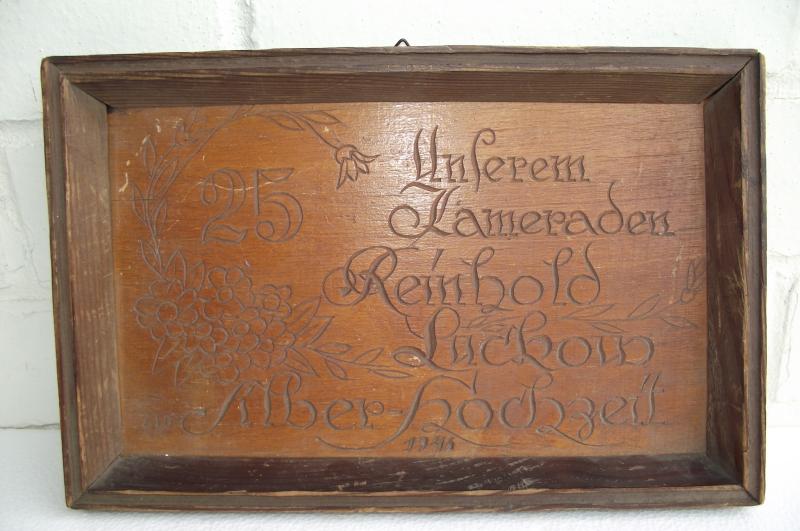 25
Unſerem
Kameraden
Reinhold
Lückow
zur Silber-Hochzeit